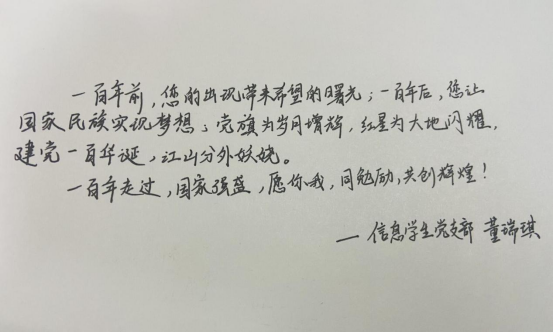 一百年前，您的出现带来希望的曙光；一百年后，您让
国家民族实现梦想；党旗为岁月增辉，红星为大地闪耀，
建党一百华诞，江山分外妖娆。
一百年走过，国家强盛，愿你我，同勉励，共创辉煌！
— 信息学生党支部 董瑞琪